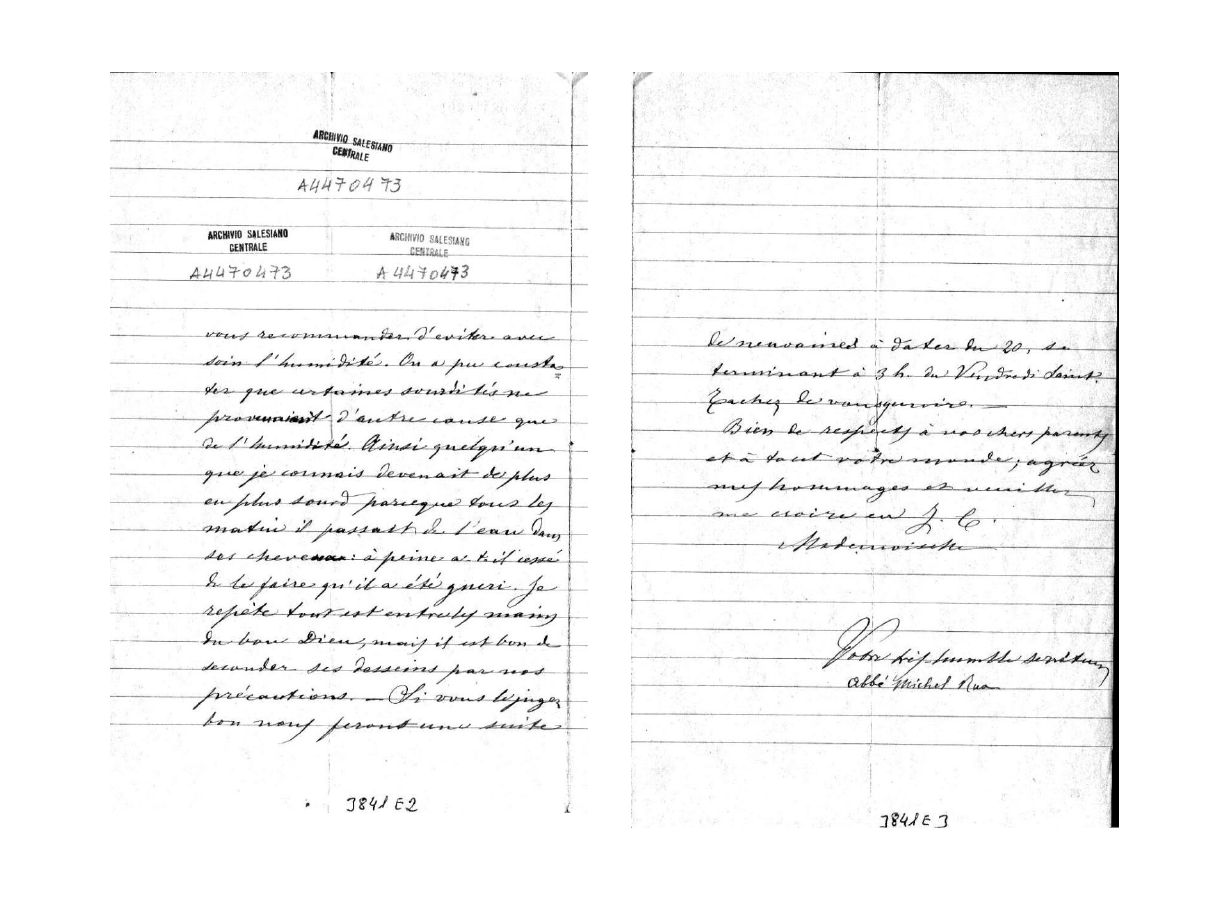 ARCHIVIO SALESIANO
CENTRALE
A4470473
ARCHIVIO SALESIANO
CENTRALE
A4470473
ARCHIVIO SALESIANO
CENTRALE
A4470473
vous recommander d'eviter avec
soin l'humidité. On a pu consta=
ter que certaines sourdités ne
provenaient d'autre cause que
de l'humidité. Ainsi quelqu'un
que je connais devenait de plus
en plus sourd parceque tous les
matin il passait de l'eau dans
ses cheveux: à peine a t-il cessé
de le faire qu'il a été gueri. Je
repète tout est entre les mains
du bon Dieu, mais il est bon de
seconder ses desseins par nos
précautions. — Si vous le jugez
bon nous ferons une suite
3841 E2
de neuvaines à dater du 20, se
terminant à 3 h. du Vendredi Saint.
Tachez de vous y unir. —
Bien de respects à vos chers parents
et à tout votre monde; agréez
mes hommages et veuillez
me croire en J. C.
Mademoiselle
Votre très humble serviteur
abbé Michel Rua
3841 E3